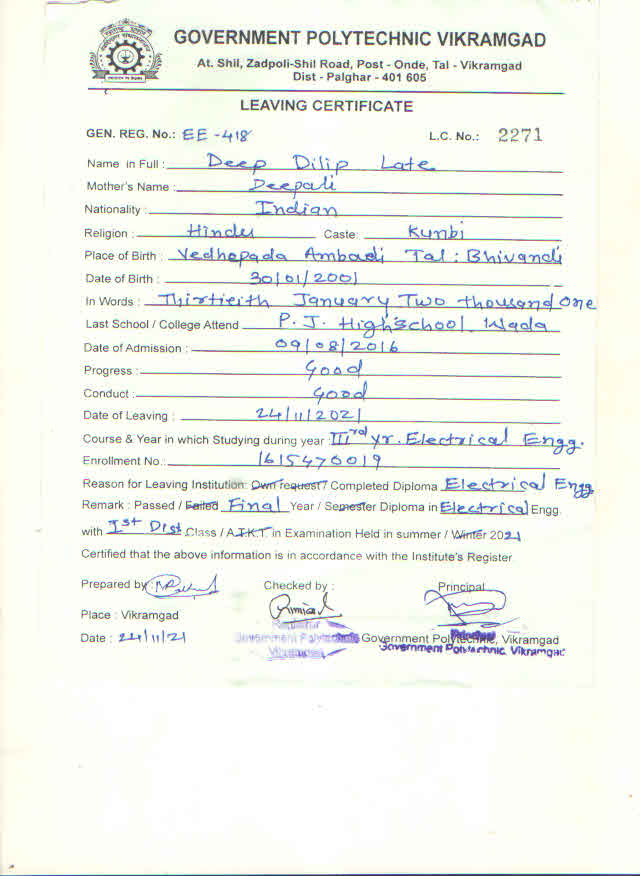 GOVERNMENT POLYTECHNIC VIKRAMGAD
At. Shil, Zadpoli-Shil Road, Post - Onde, Tal - Vikramgad
Dist - Palghar - 401 605
LEAVING CERTIFICATE
GEN. REG. No.: EE - 418 L.C. No.: 2271
Name in Full : Deep Dilip Late
Mother's Name : Deepali
Nationality : Indian
Religion : Hindu Caste: Kunbi
Place of Birth : Vedhepada Ambadi Tal : Bhivandi
Date of Birth : 30/01/2001
In Words : Thirtieith January Two thousand One
Last School / College Attend P. J. Highschool, Wada
Date of Admission : 09/08/2016
Progress : Good
Conduct : Good
Date of Leaving : 24/11/2021
Course & Year in which Studying during year IIIrd yr. Electrical Engg.
Enrollment No.: 1615470019
Reason for Leaving Institution: Own request / Completed Diploma Electrical Engg
Remark : Passed / Failed Final Year / Semester Diploma in Electrical Engg.
with Ist Dist Class / A.T.K.T. in Examination Held in summer / Winter 2021
Certified that the above information is in accordance with the Institute's Register
Prepared by : Checked by : Principal
Place : Vikramgad
Date : 24/11/21 Government Polytechnic, Vikramgad
Registrar
Government Polytechnic
Vikramgad
Principal
Government Polytechnic, Vikramgad